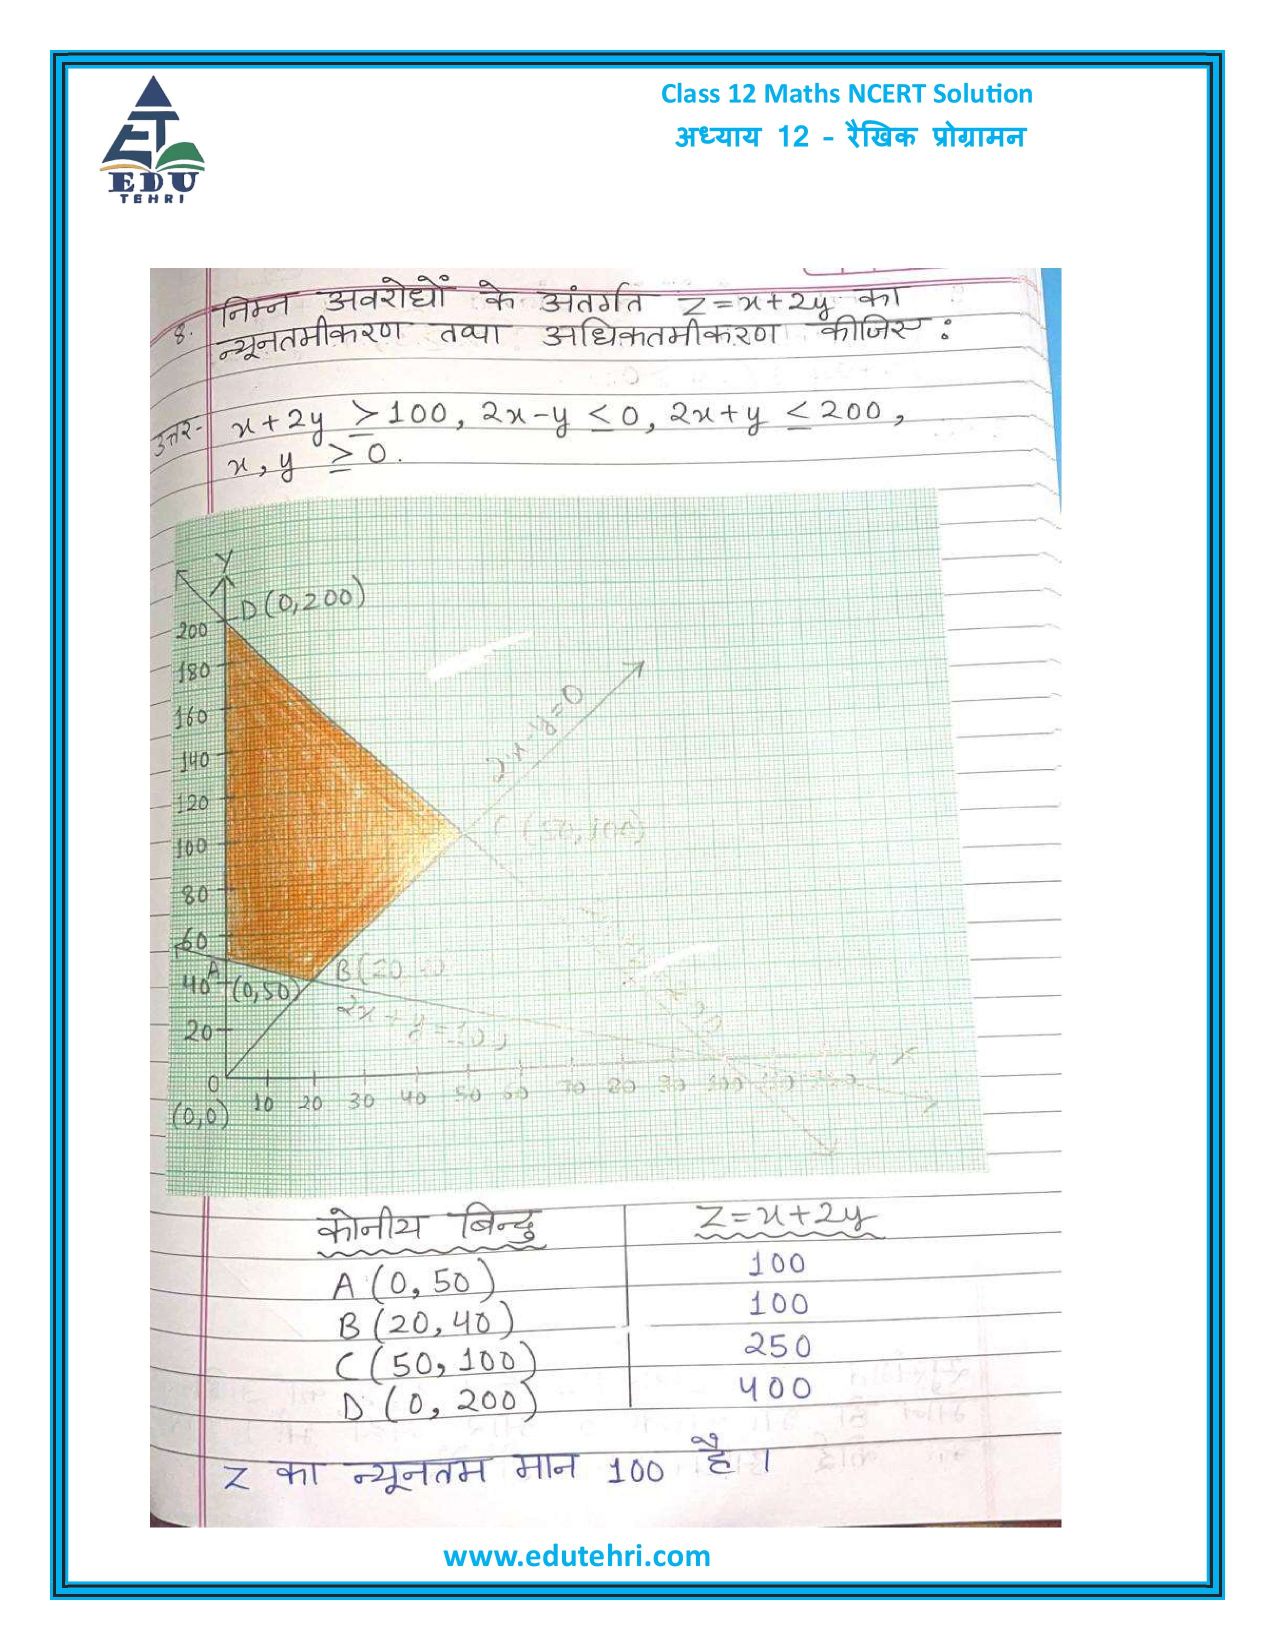 Class 12 Maths NCERT Solution
अध्याय 12 - रैखिक प्रोग्रामन
ET
EDU
TEHRI
8. निम्न अवरोधों के अंतर्गत Z=x+2y का
न्यूनतमीकरण तथा अधिकतमीकरण कीजिए :
उत्तर- x+2y ≥ 100, 2x-y ≤ 0, 2x+y ≤ 200,
x, y ≥ 0.
Y
D(0,200)
200
180
160
2x-y=0
140
120
C(50,100)
100
80
60
A
B(20
40
(0,50)
2x+y=100
20
X
0
10 20 30 40 50 60 70 80 90 100
(0,0)
कोनीय बिन्दु Z=x+2y
A (0, 50) 100
B (20, 40) 100
C (50, 100) 250
D (0, 200) 400
Z का न्यूनतम मान 100 है ।
www.edutehri.com